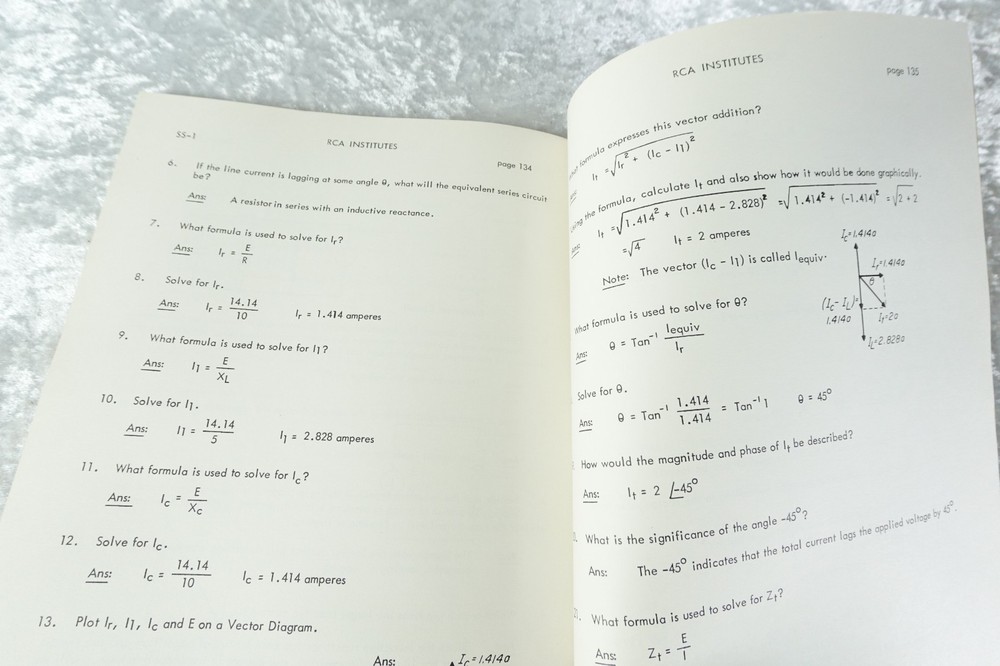 SS-1
RCA INSTITUTES
page 134
6. If the line current is lagging at some angle θ, what will the equivalent series circuit
be?
Ans: A resistor in series with an inductive reactance.
7. What formula is used to solve for Ir?
Ans: Ir = E/R
8. Solve for Ir.
Ans: Ir = 14.14/10 Ir = 1.414 amperes
9. What formula is used to solve for I1?
Ans: I1 = E/XL
10. Solve for I1.
Ans: I1 = 14.14/5 I1 = 2.828 amperes
11. What formula is used to solve for Ic?
Ans: Ic = E/Xc
12. Solve for Ic.
Ans: Ic = 14.14/10 Ic = 1.414 amperes
13. Plot Ir, I1, Ic and E on a Vector Diagram.
Ans: Ic=1.414a
RCA INSTITUTES
page 135
formula expresses this vector addition?
It = √Ir² + (Ic - I1)²
the formula, calculate It and also show how it would be done graphically.
Ans: It = √1.414² + (1.414 - 2.828)² = √1.414² + (-1.414)² = √2 + 2
= √4 It = 2 amperes
Note: The vector (Ic - I1) is called Iequiv.
Ic=1.414a
Ir=1.414a
θ
(Ic-IL)=
1.414a
It=2a
IL=2.828a
What formula is used to solve for θ?
Ans: θ = Tan⁻¹ Iequiv/Ir
Solve for θ.
Ans: θ = Tan⁻¹ 1.414/1.414 = Tan⁻¹ 1 θ = 45°
How would the magnitude and phase of It be described?
Ans: It = 2 ∠-45°
What is the significance of the angle -45°?
Ans: The -45° indicates that the total current lags the applied voltage by 45°.
What formula is used to solve for Zt?
Ans: Zt = E/I